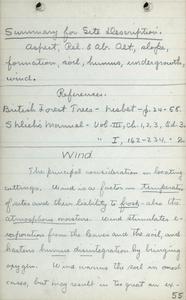 Summary for Site Description.
Aspect, Rel. & Ab. Alt., slope,
formation, soil, humus, undergrowth,
wind.
References.
British Forest Trees - Nisbet - p. 24-58.
Schlich's Manual - Vol III, Ch. 1, 2, 3, Ed. 3.
" I, 162-234. - 2.
Wind
The principal consideration in locating
cuttings. Wind is a factor in temperature
of sites and their liability to frost - also the
atmospheric moisture. Wind stimulates e-
vaporation from the leaves and the soil, and
hastens humus disintegration by bringing
oxygen. Wind warms the soil in most
cases, but may result in too great an ex-
55